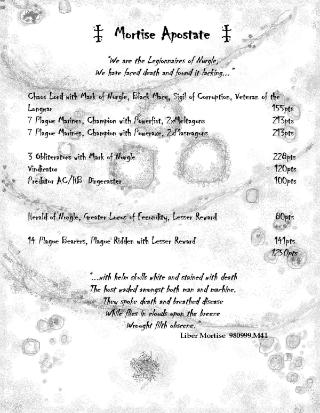 Mortise Apostate
"We are the Legionnaires of Nurgle,
We have faced death and found it lacking..."
Chaos Lord with Mark of Nurgle, Black Mace, Sigil of Corruption, Veteran of the
Longwar 155pts
7 Plague Marines, Champion with Powerfist, 2xMeltaguns 213pts
7 Plague Marines, Champion with Poweraxe, 2xPlasmaguns 213pts
3 Obliterators with Mark of Nurgle 228pts
Vindicator 120pts
Predator AC/HB Dirgecaster 100pts
Herald of Nurgle, Greater Locus of Fecundity, Lesser Reward 80pts
14 Plague Bearers, Plague Ridden with Lesser Reward 141pts
1250pts
"...with helm skulls white and stained with death
The host waded amongst both man and machine,
They spoke death and breathed disease
While flies in clouds upon the breeze
Wrought filth obscene."
Liber Mortise 980999.M41